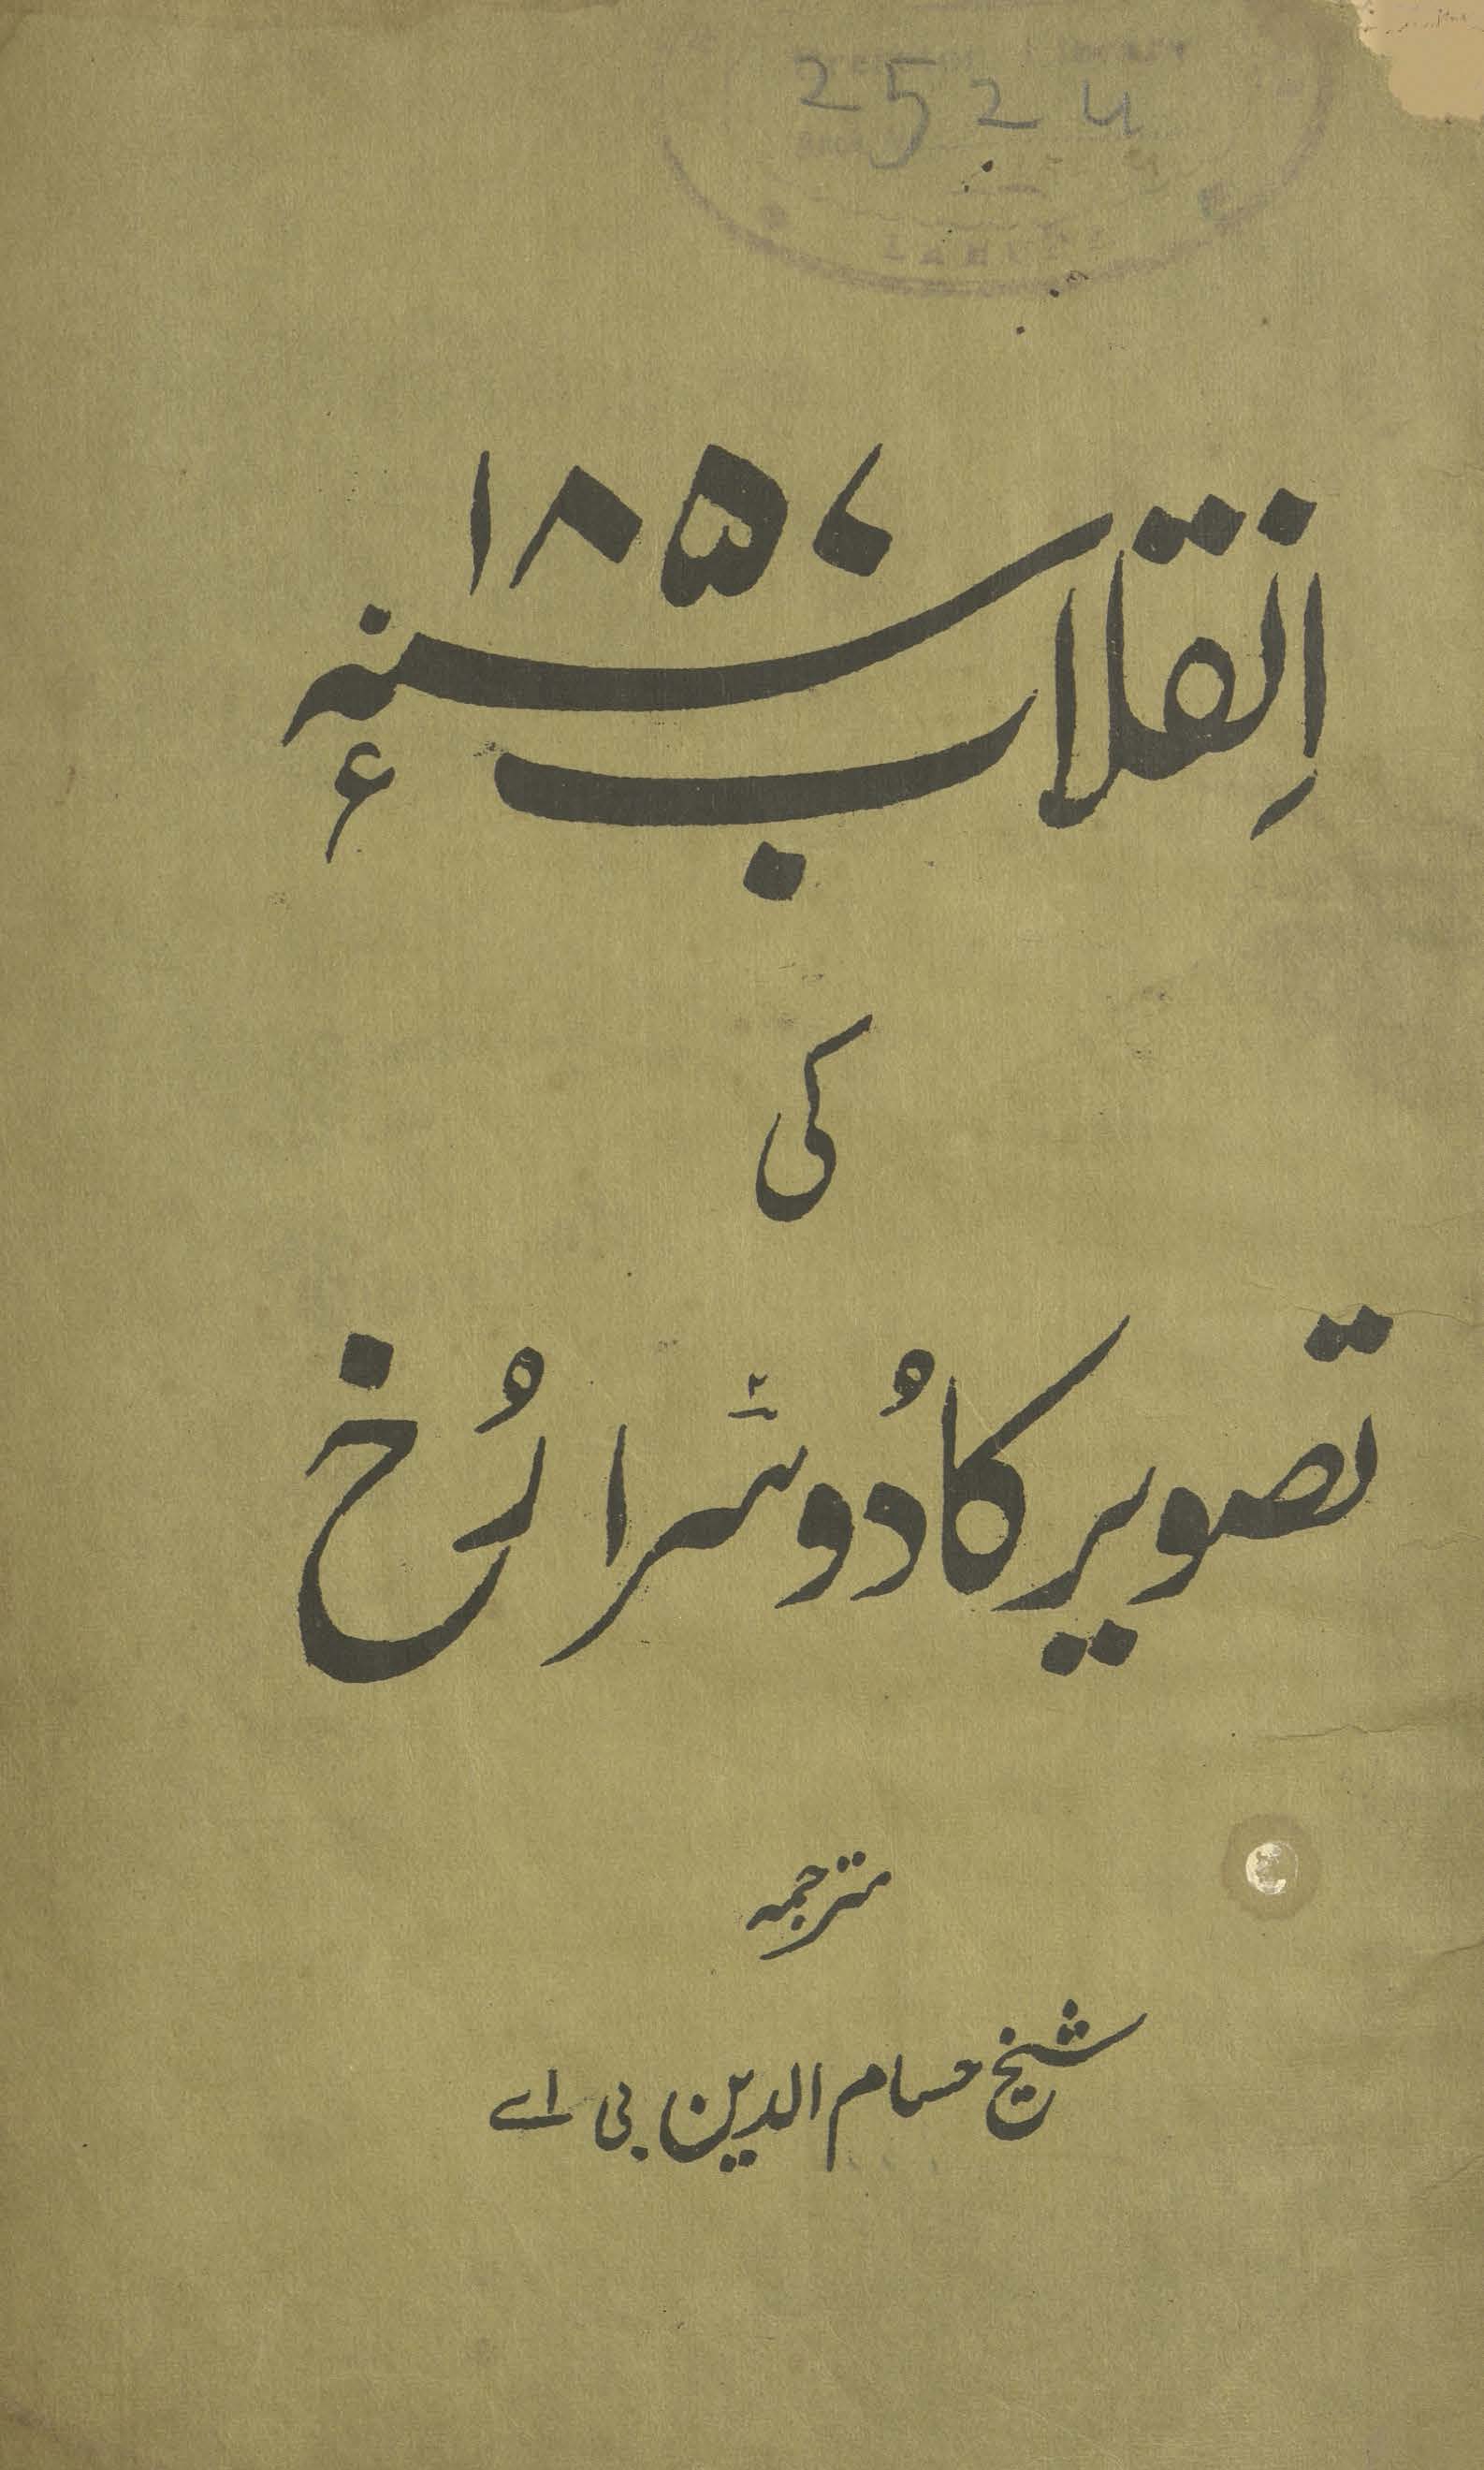 2524
انقلاب سنہ ۱۸۵۷ء
کی
تصویر کا دُوسرا رُخ
مترجمہ
شیخ حسام الدین بی اے